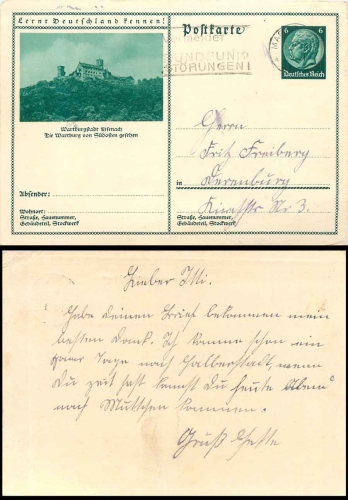 Lernt Deutschland kennen!
Postkarte
melde
RUNDFUNK
STÖRUNGEN!
6 6
Deutsches Reich
Wartburgstadt Eisenach
Die Wartburg von Südosten gesehen
Herrn
Fritz Freiberg
in Derenburg
Nr 3.
Absender:
Wohnort:
Straße, Hausnummer,
Gebäudeteil, Stockwerk
Straße, Hausnummer,
Gebäudeteil, Stockwerk
Lieber
Habe deinen Brief bekommen mein
besten Dank. Ich komme schon ein
paar Tage nach Halberstadt, wenn
Du zeit hast kannst Du heute Abend
nach kommen.
Gruß